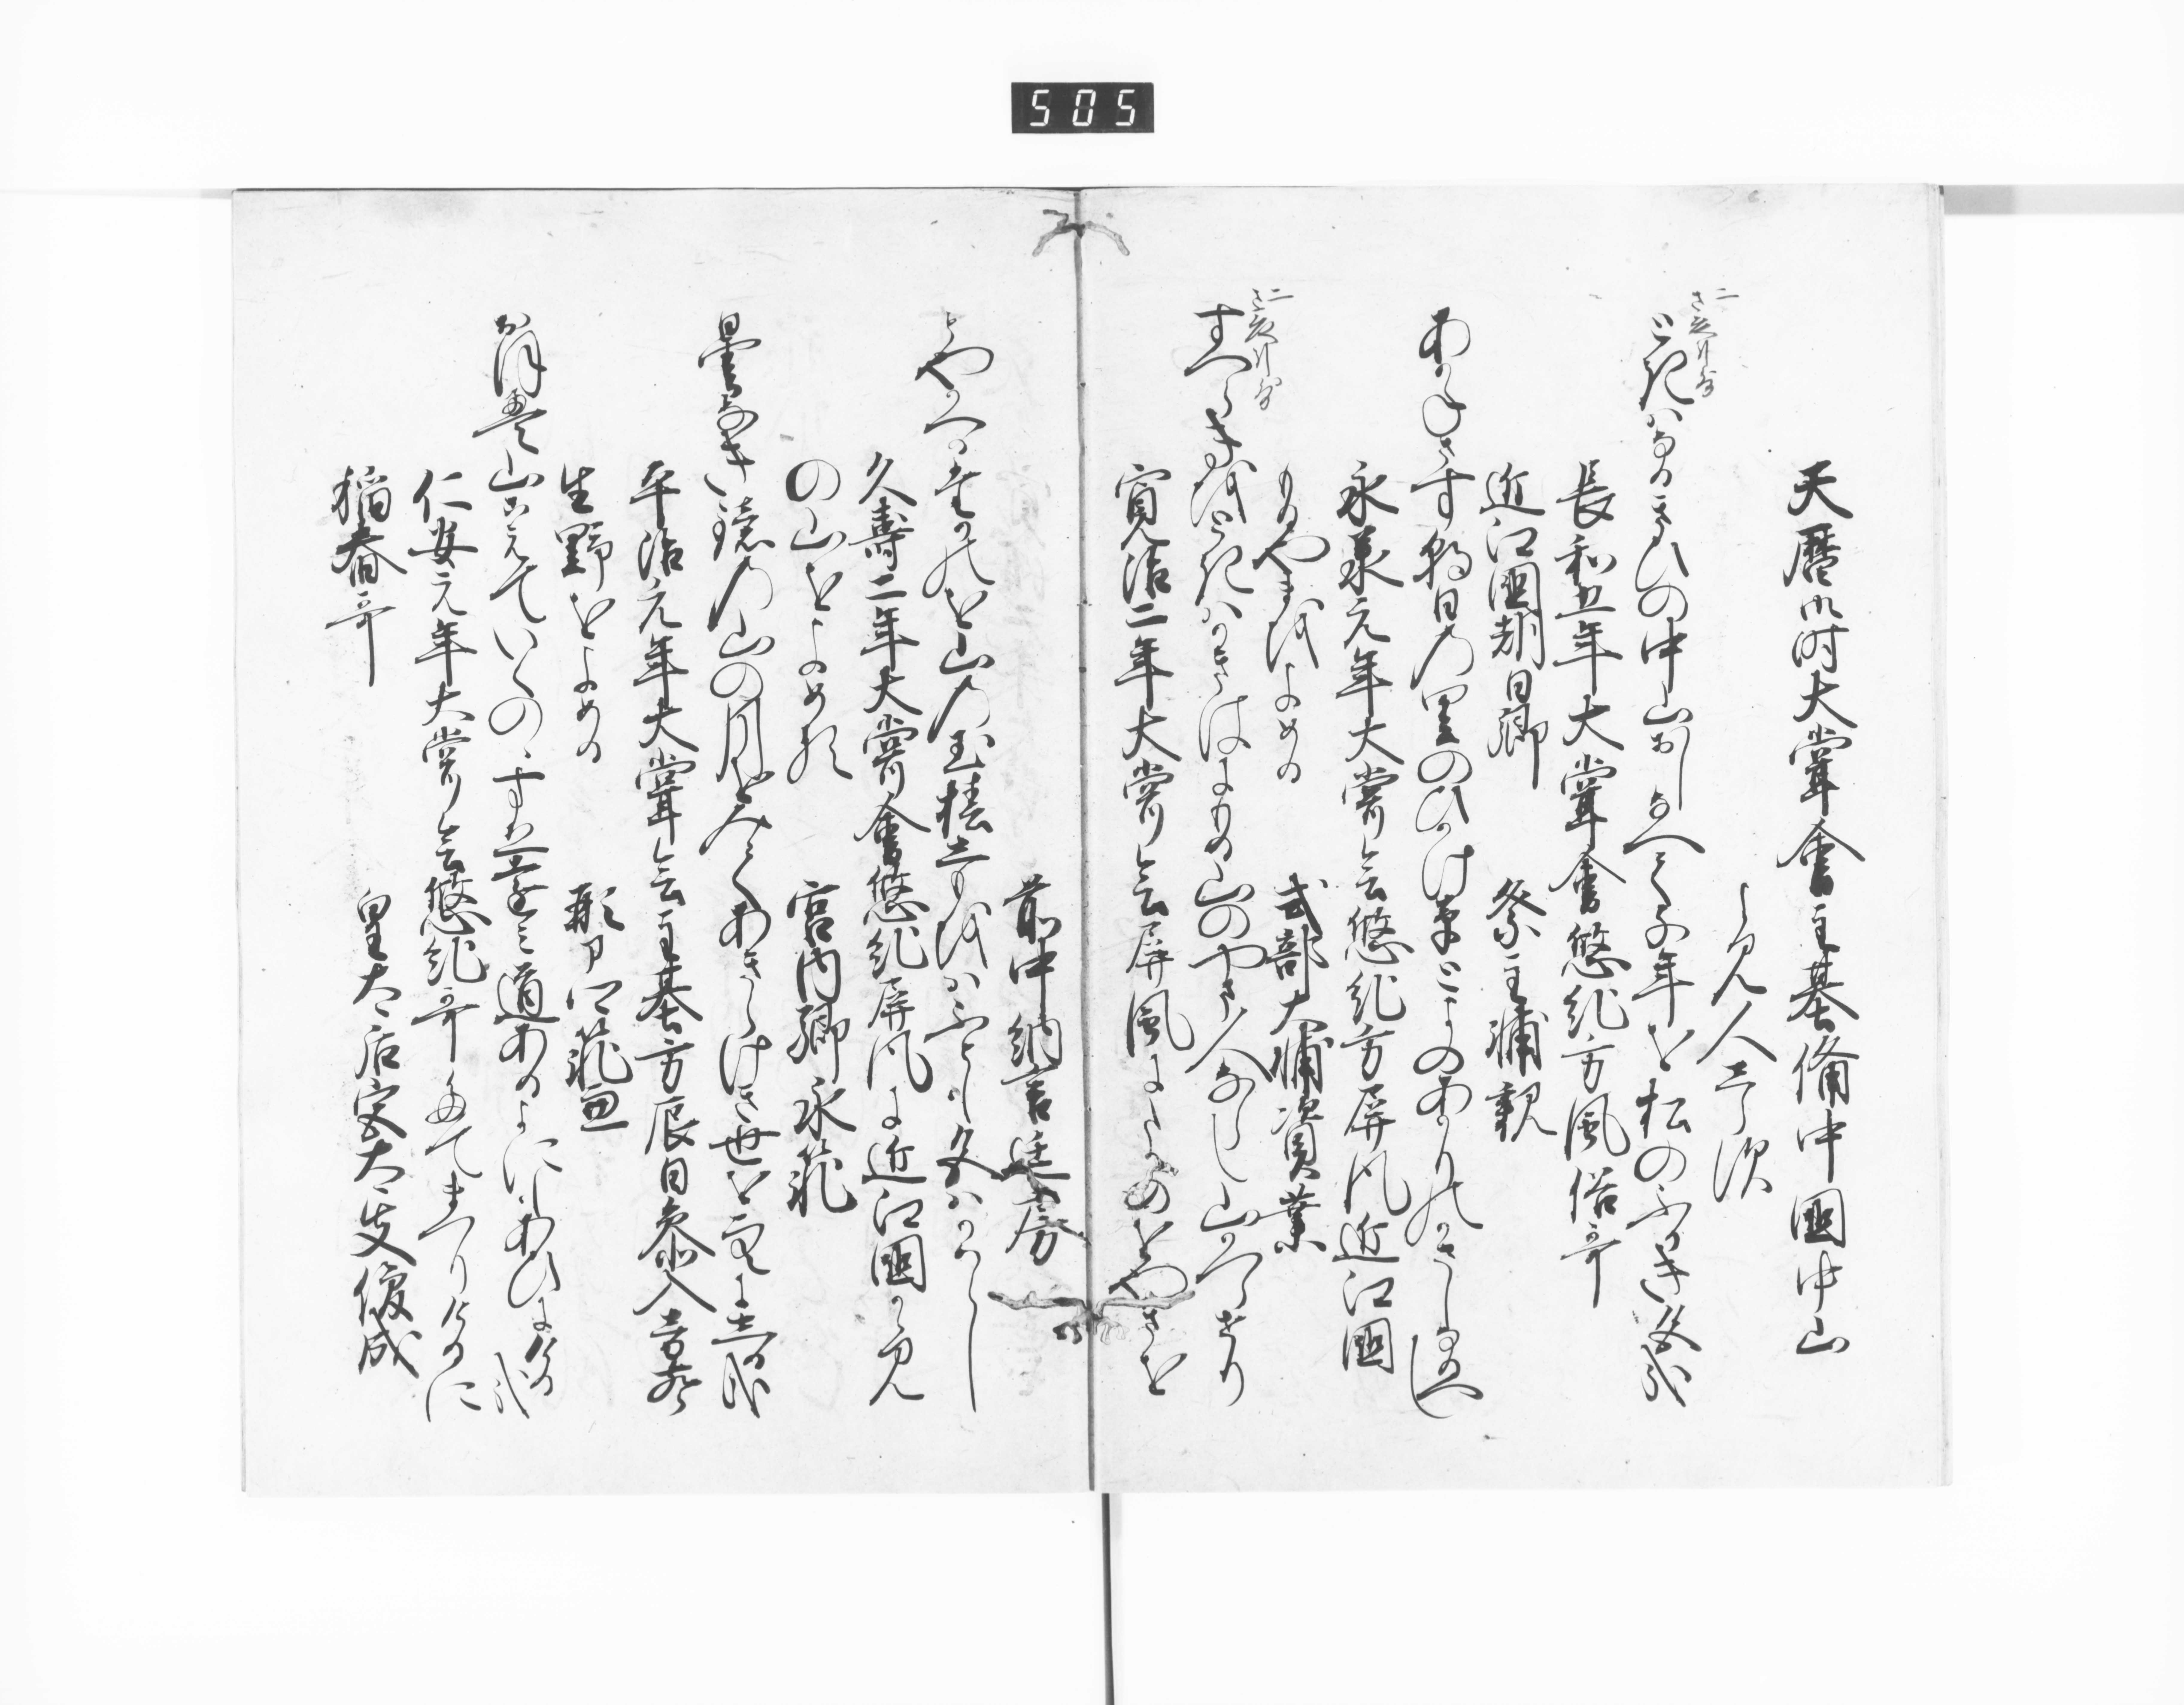 505
天暦御時大嘗會主基備中國中山
よみ人しらす
ときはなるきひの中山おしなへてちとせを松のふかき色哉
長和五年大嘗會悠紀方風俗哥
近江國朝日郷　祭主輔親
あかねさす朝日の里のひかけ草とよのあかりのかさしなるへし
永承元年大嘗会悠紀方屏風近江國
もるやまをよめる　式部大輔資業
すへらきをときはかきはにもる山のやま人ならし山かつらせり
寛治二年大嘗会屏風にたかのをやまを
前中納言匡房
とやかへるたかのを山の玉椿しもをはふとも色はかはらし
久壽二年大嘗會悠紀屏風に近江國かゝみ
の山をよめる　宮内卿永範
曇なき鏡の山の月をみてあきらけき世を空にしる哉
平治元年大嘗会主基方辰日参入音聲
生野をよめる　刑部卿範兼
おほえ山こえていくのゝすゑとをみ道あるよにもあひにける哉
仁安元年大嘗会悠紀哥たてまつりけるに
稲舂哥　皇太后宮大夫俊成